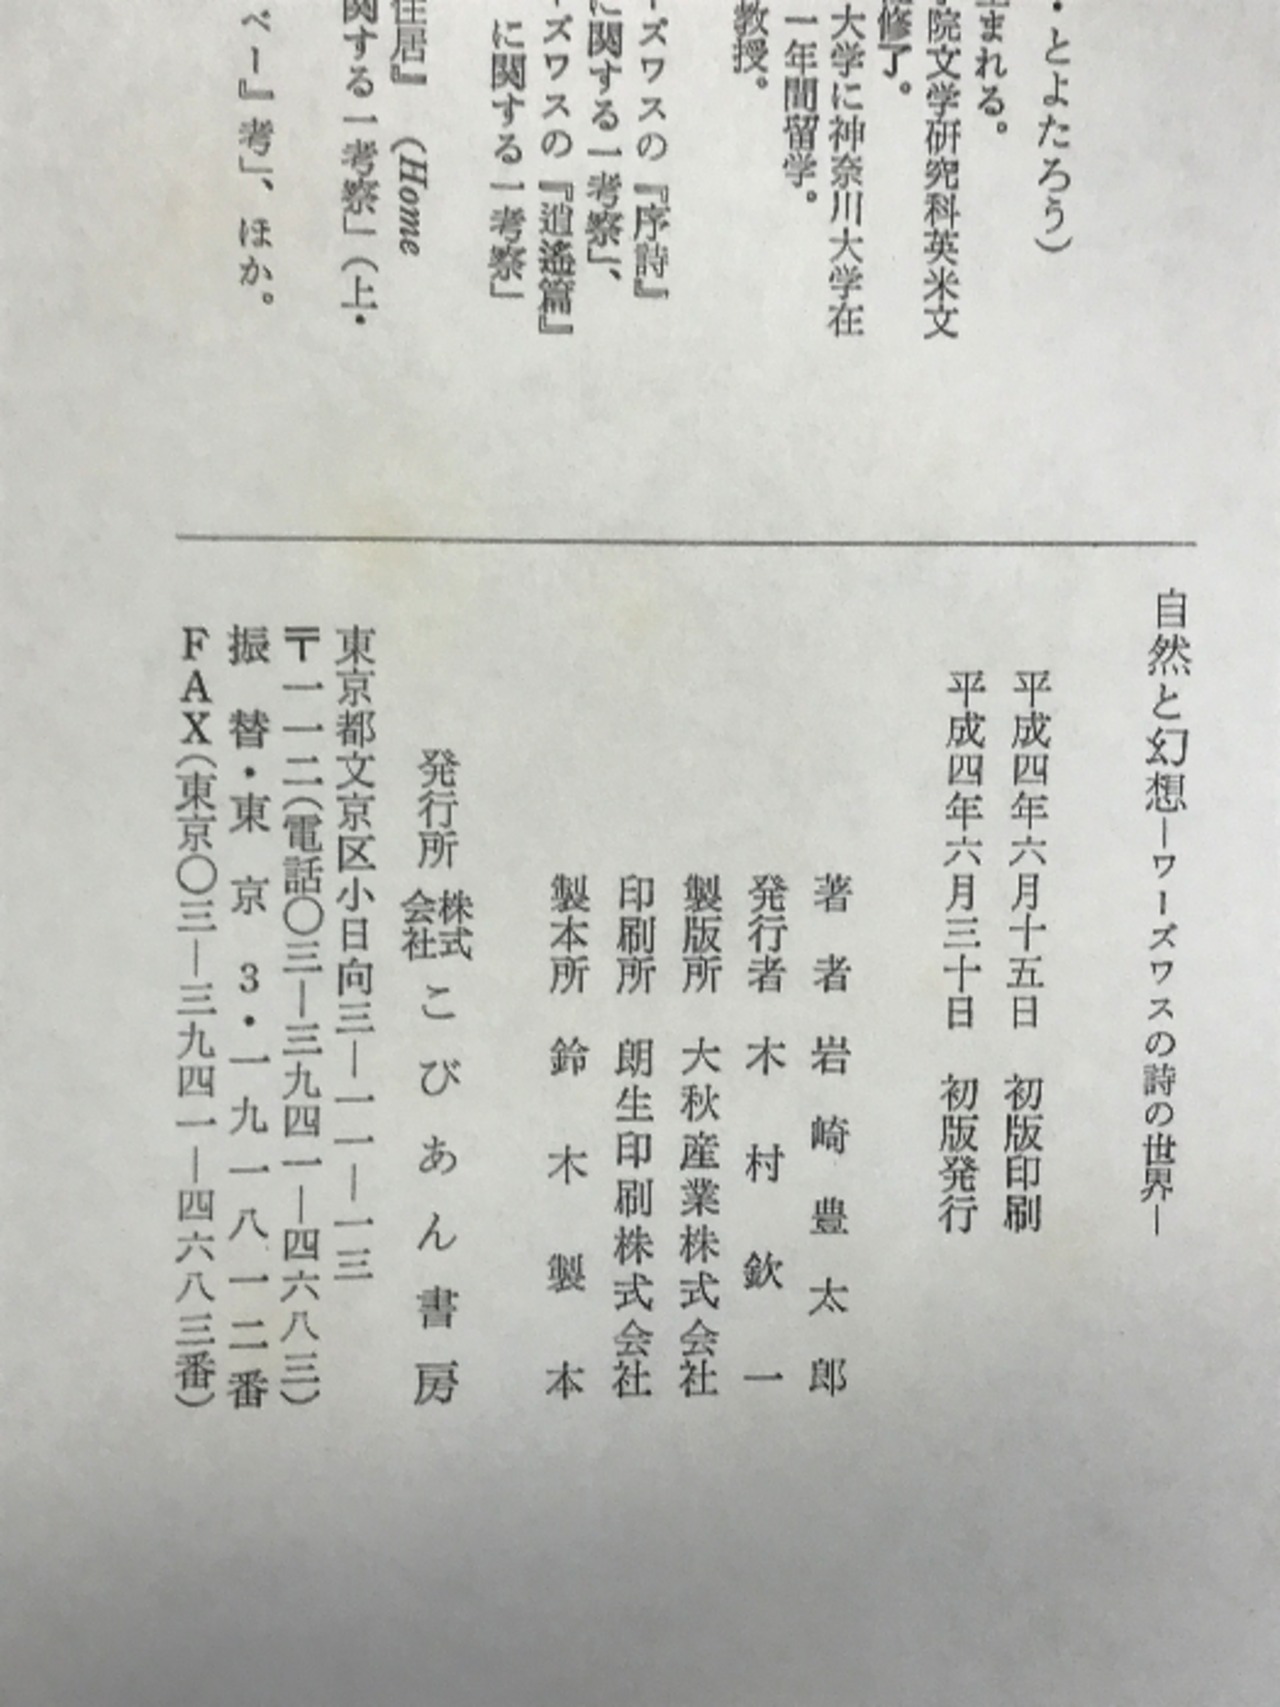 ・とよたろう）
まれる。
院文学研究科英米文
修了。
大学に神奈川大学在
一年間留学。
教授。
ーズワスの『序詩』
に関する一考察」、
ーズワスの『逍遙篇』
に関する一考察」
住居』（Home
関する一考察」（上・
ベー』考」、ほか。
自然と幻想―ワーズワスの詩の世界―
平成四年六月十五日　初版印刷
平成四年六月三十日　初版発行
著者　岩崎豊太郎
発行者　木村欽一
製版所　大秋産業株式会社
印刷所　朗生印刷株式会社
製本所　鈴木製本
発行所　株式会社　こびあん書房
東京都文京区小日向三―一一―一三
〒一一二（電話〇三―三九四一―四六八三）
振替・東京　3・一九一八一二番
FAX（東京〇三―三九四一―四六八三番）